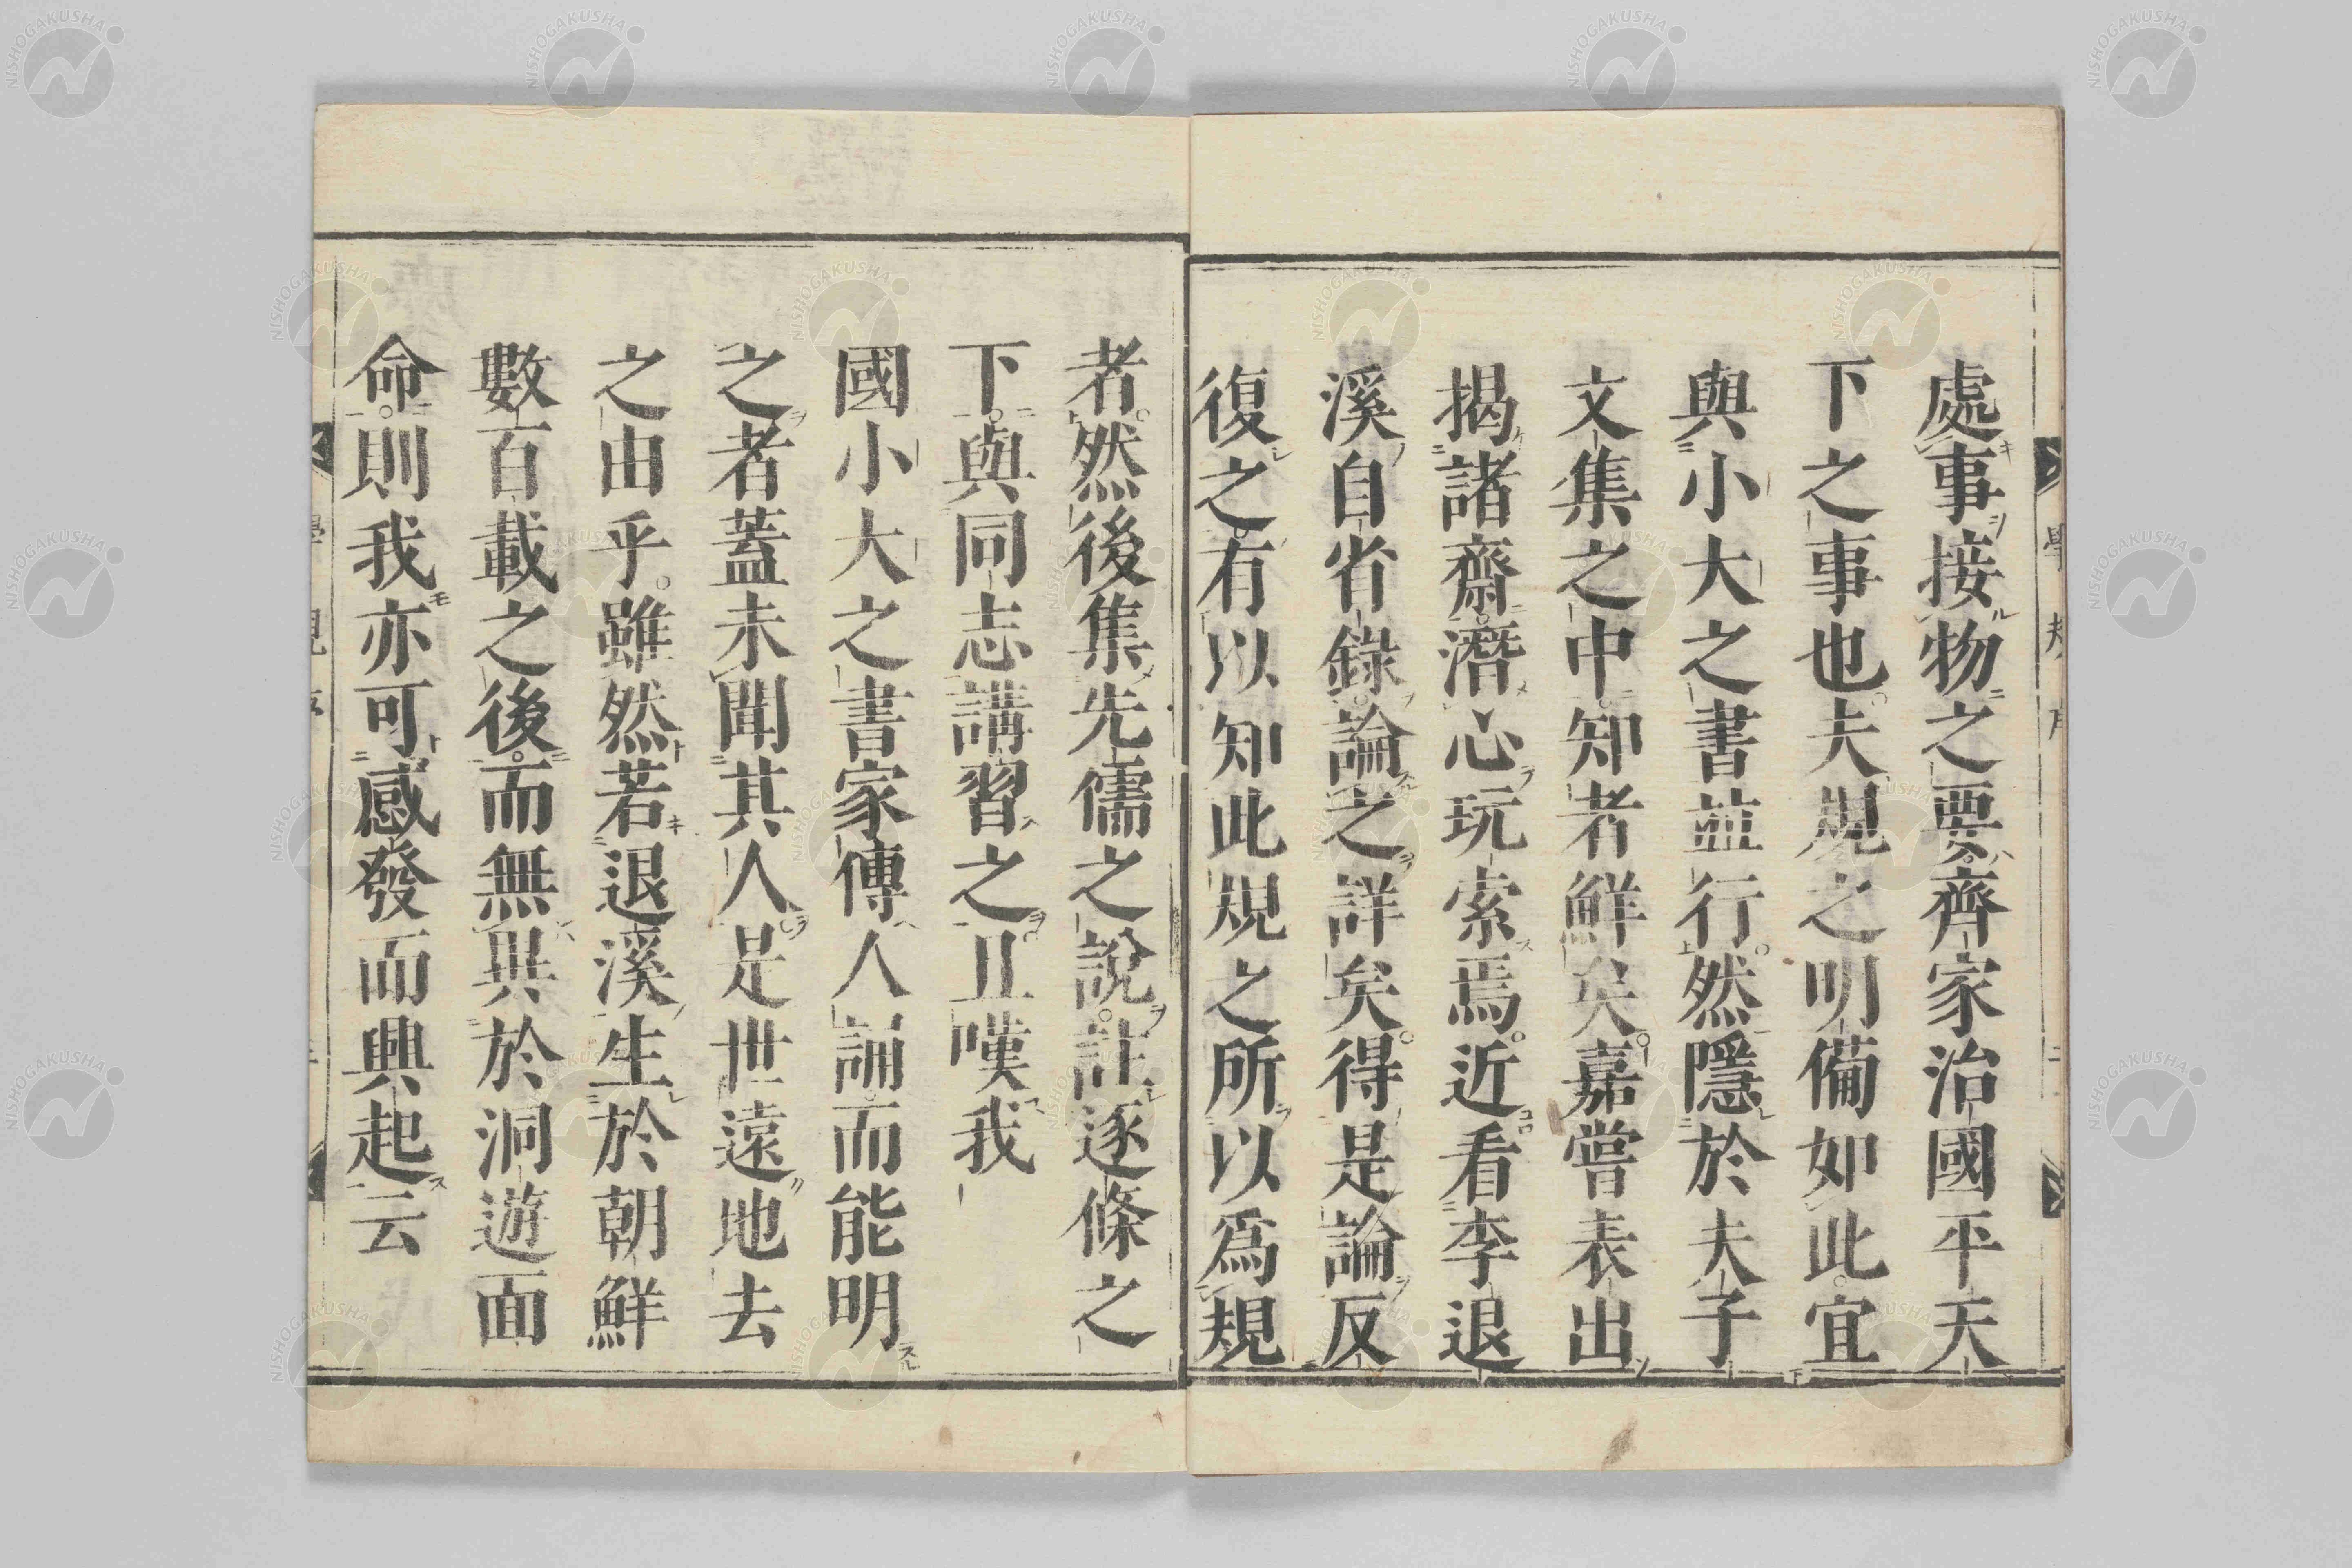 處事接物之要齊家治國平天
下之事也夫規之明備如此宜
與小大之書並行然隱於夫子
文集之中知者鮮矣嘉嘗表出
揭諸齋潛心玩索焉近看李退
溪自省錄論之詳矣得是論反
復之有以知此規之所以爲規
者然後集先儒之說註逐條之
下與同志講習之且嘆我
國小大之書家傳人誦而能明
之者蓋未聞其人是世遠地去
之由乎雖然若退溪生於朝鮮
數百載之後而無異於洞遊面
命則我亦可感發而興起云